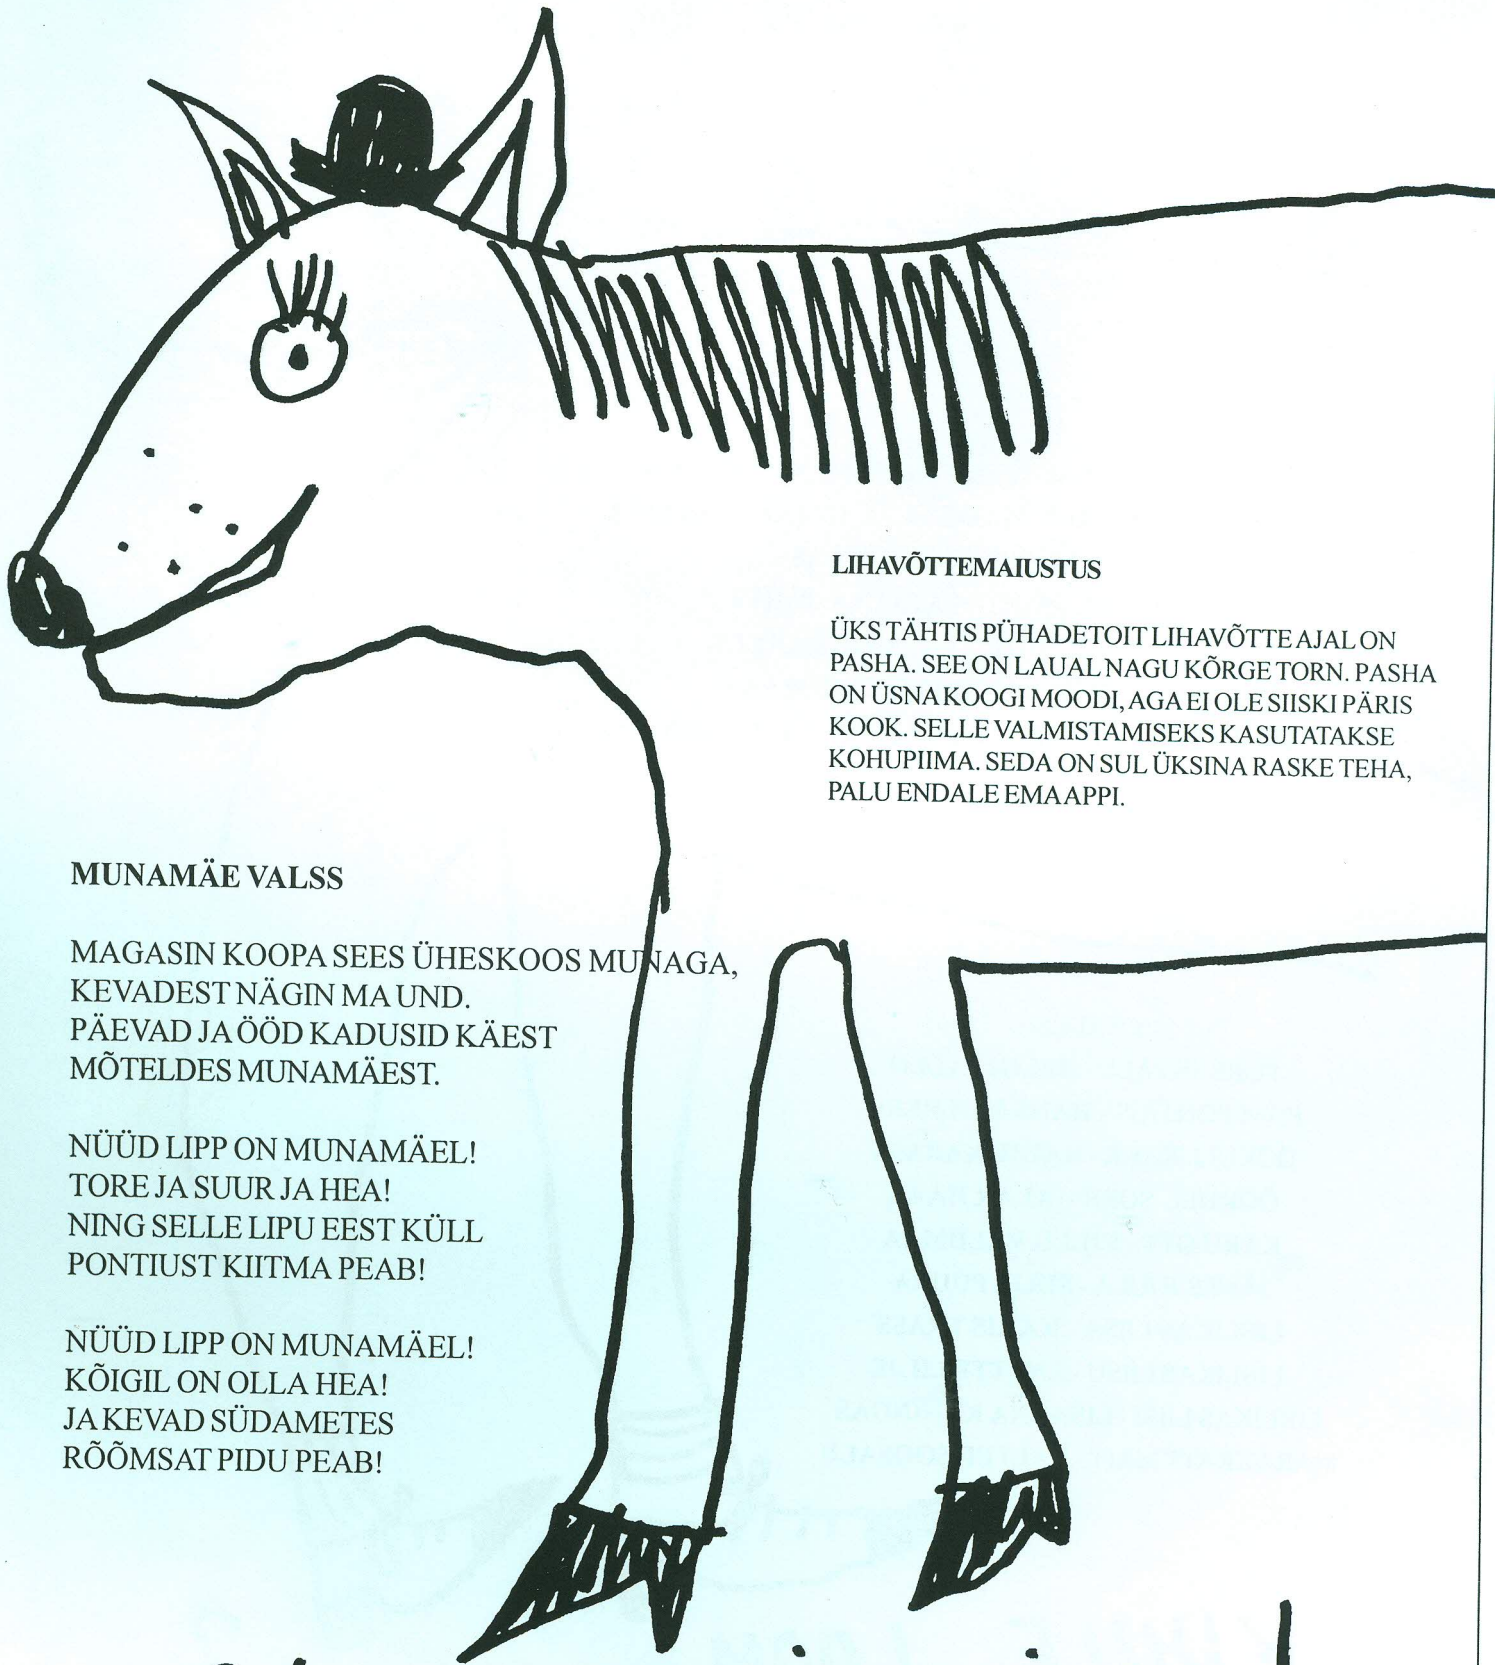 LIHAVÕTTEMAIUSTUS
ÜKS TÄHTIS PÜHADETOIT LIHAVÕTTE AJAL ON
PASHA. SEE ON LAUAL NAGU KÕRGE TORN. PASHA
ON ÜSNA KOOGI MOODI, AGA EI OLE SIISKI PÄRIS
KOOK. SELLE VALMISTAMISEKS KASUTATAKSE
KOHUPIIMA. SEDA ON SUL ÜKSINA RASKE TEHA,
PALU ENDALE EMA APPI.
MUNAMÄE VALSS
MAGASIN KOOPA SEES ÜHESKOOS MUNAGA,
KEVADEST NÄGIN MA UND.
PÄEVAD JA ÖÖD KADUSID KÄEST
MÕTELDES MUNAMÄEST.
NÜÜD LIPP ON MUNAMÄEL!
TORE JA SUUR JA HEA!
NING SELLE LIPU EEST KÜLL
PONTIUST KIITMA PEAB!
NÜÜD LIPP ON MUNAMÄEL!
KÕIGIL ON OLLA HEA!
JA KEVAD SÜDAMETES
RÕÕMSAT PIDU PEAB!